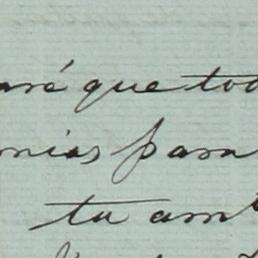 aré que tod
nias para
tu am